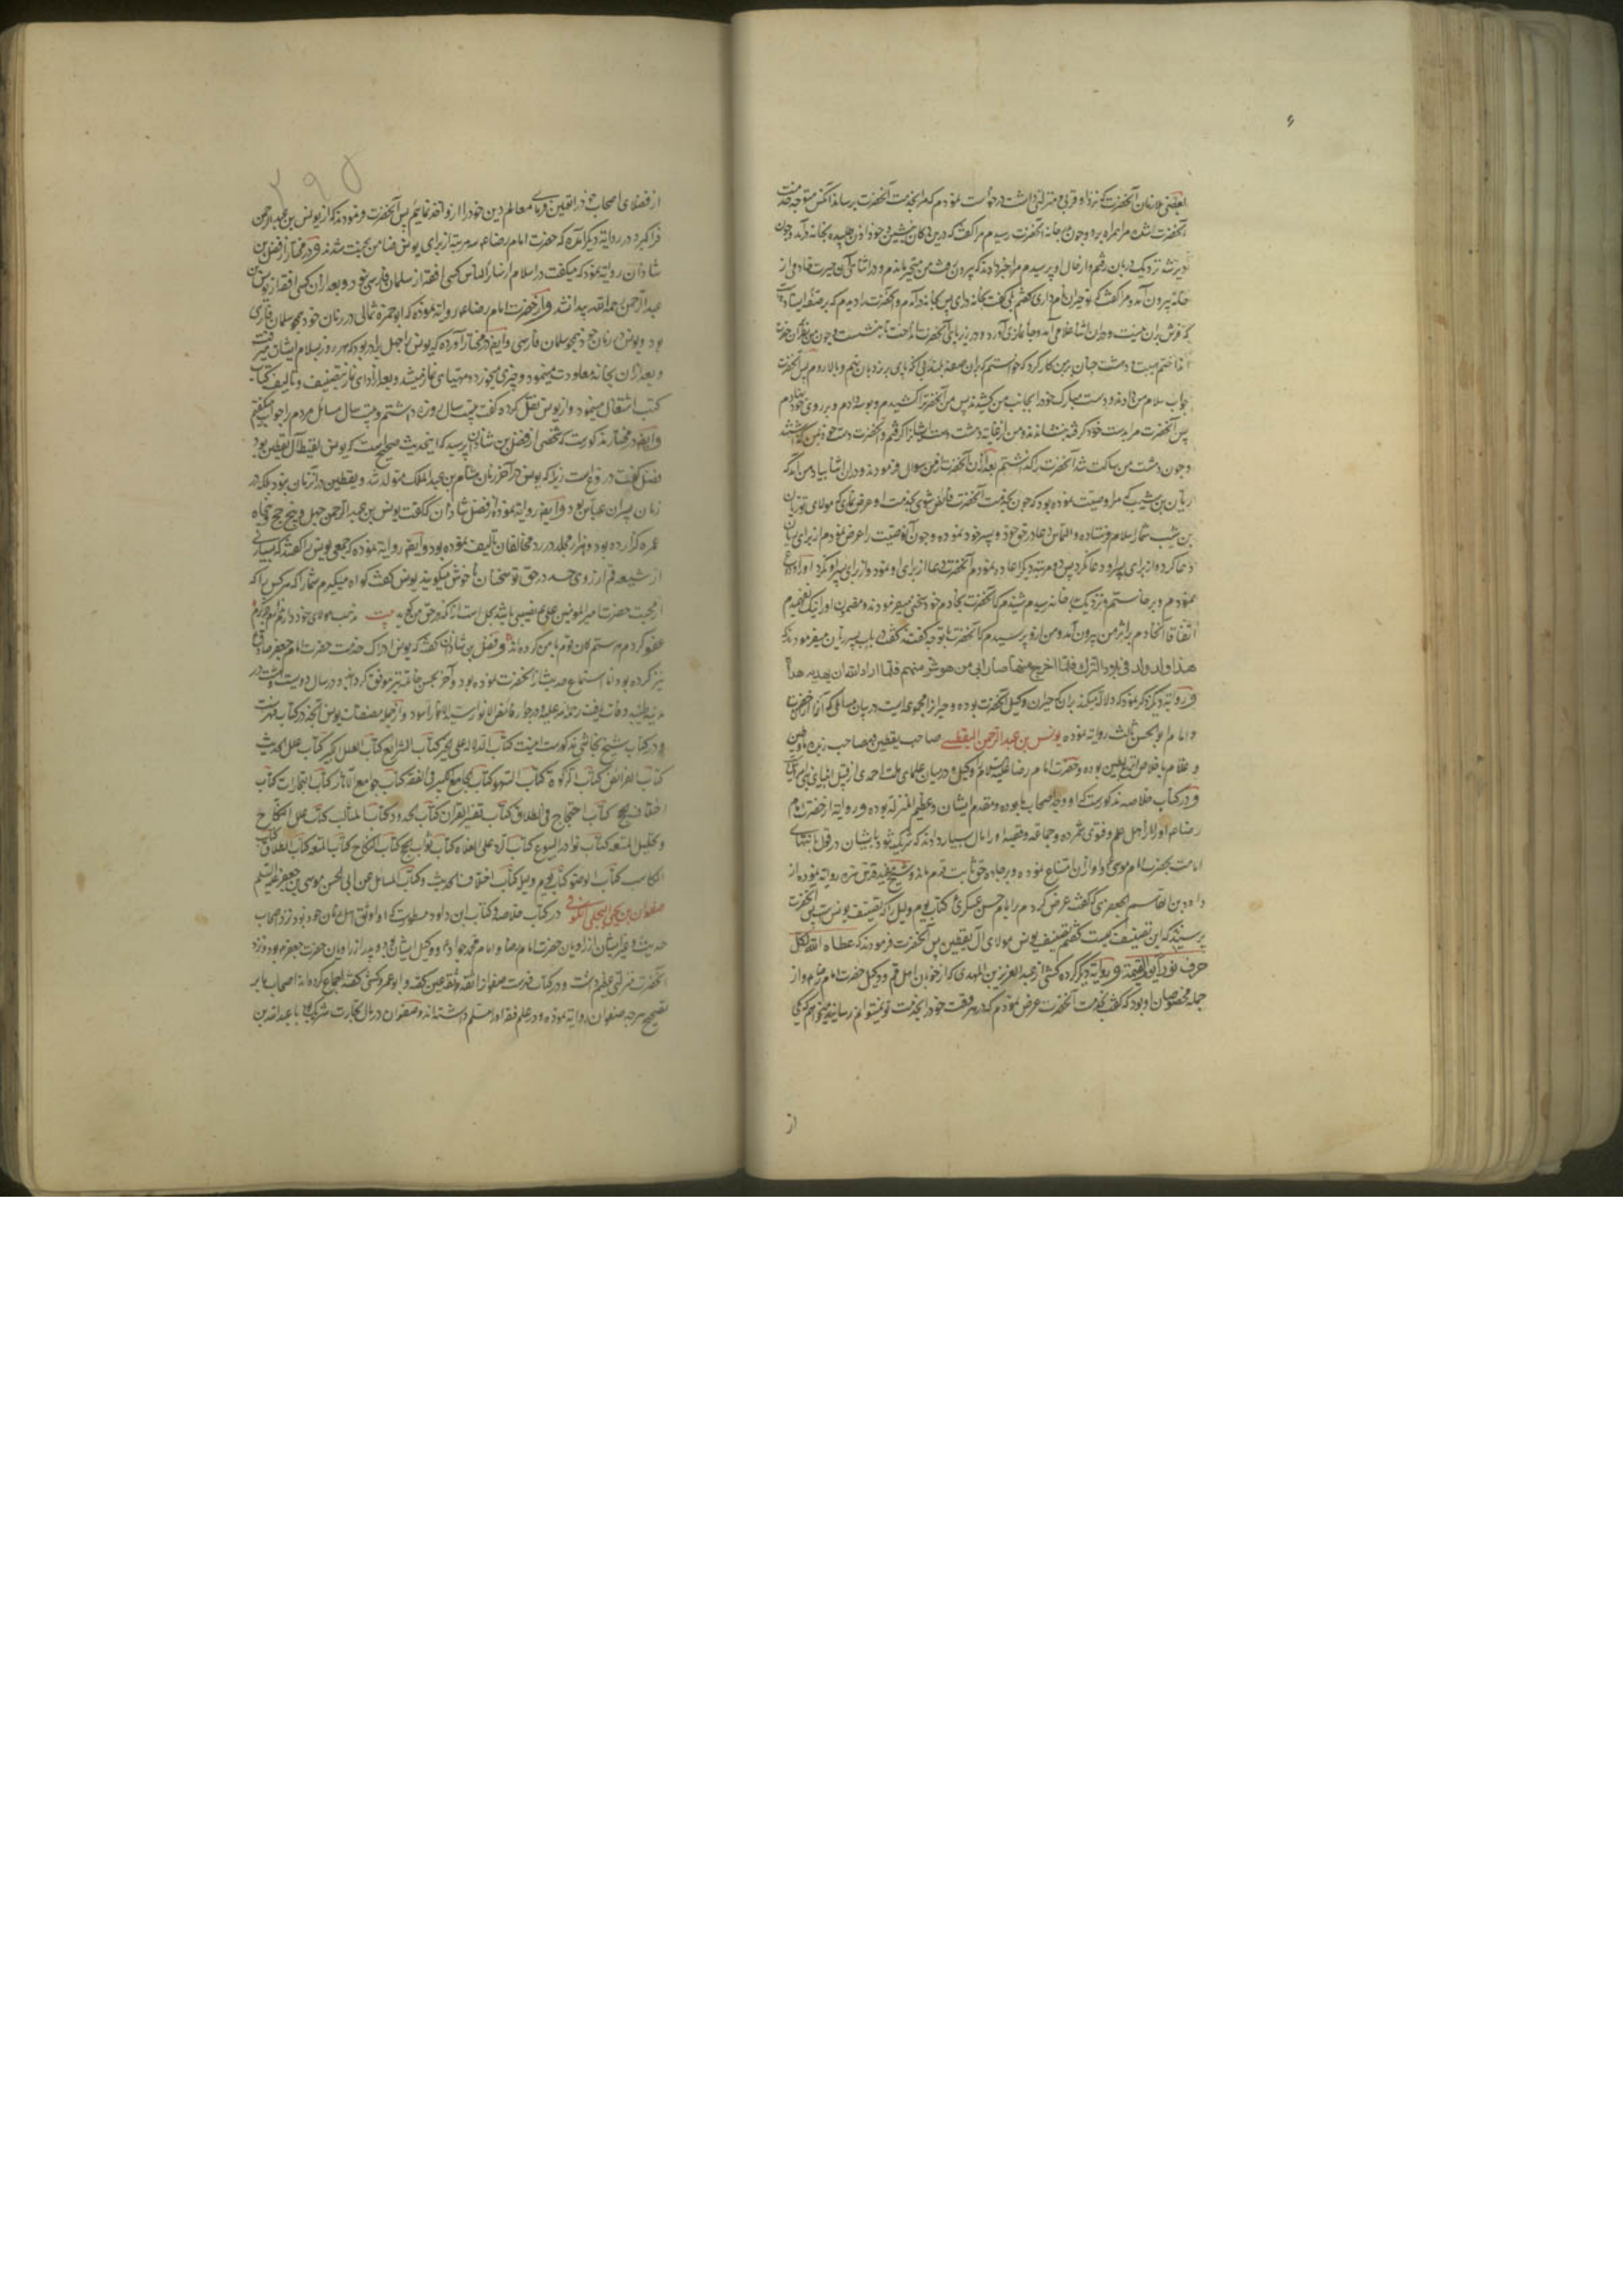 بعضی ملازمان آنحضرت که نزد او قربی و منزلتی داشت درخواست نمودم که مرا بخدمت آنحضرت برساند آنکس متوجه خدمت
آنحضرت شد من مرا همراه برد و چون بدر خانه آنحضرت رسیدیم مرا گفت که درین دکان بنشین خود اذن طلبیده بخانه درآمد و چون
دیر شد نزدیک دربان رفتم و از حال او پرسیدم مرا خبر دادند که بیرون رفت من متحیر ماندم و در اثنای آن حیرت خادمی از
خانه بیرون آمد و مرا گفت که تو خیران نام داری گفتم بلی گفت بخانه درای پس بخانه درآمدم و آنحضرت را دیدم که بر صفه ایستاده
که فرش بران نیست و دران اثنا غلامی آمد و جا نمازی آورد و در زیر پای آنحضرت انداخت تا بنشست و چون من نظر بران حضرت
انداختم هیبت و دهشت چنان بر من کار کرد که خواستم که بران صفه بلند بی آنکه پای بر نردبان نهم و بالا روم پس آنحضرت
جواب سلام من دادند و دست مبارک خود را بجانب من کشیدند پس من دست آنحضرت را کشیدم و بوسه دادم و بر روی خود نهادم
پس آنحضرت مرا بدست خود گرفته بنشاندند و من از غایت دهشت دست ایشانرا گرفتم و آنحضرت دست خود بمن گذاشتند
و چون دهشت من ساکت شد آنحضرت را گذاشتم بعد از آن آنحضرت از من سوال فرمودند و دران اثنا بیاد من آمد که
ریان بن شبیب مرا وصیت نموده بود که چون بخدمت آنحضرت فائض شوی بخدمت او عرض نمای که مولای تو ریان
بن شبیب شما را سلام فرستاده و التماس دعا در حق خود و پسر خود نموده و چون آن وصیت را عرض نمودم از برای ریان
دعا کرد و از برای پسر او دعا نکرد پس دو مرتبه دیگر اعاده نمودم آنحضرت دعا از برای او نمود و از برای پسر او نکرد
نمودم و برخاستم و نزدیک بدر خانه رسیدم شنیدم که آنحضرت بخادم خود سخنی میفرمودند و مضمون او را نیک نفهمیدم
اتفاقا آنخادم بر اثر من بیرون آمد و من ازو پرسیدم که آنحضرت با تو چه گفتند گفت در باب پسر ریان میفرمودند که
هذا ولد ولد فی بلاد الترک فلما اخرج منها صار الی من هو شر منهم فلما اراد الله ان یهدیه هداه
و روایتی دیگر ذکر نموده که دلالت میکند بر آن که خیران وکیل آنحضرت بوده و خیران را مجموعه‌ایست در بیان مسائلی که آنها از حضرت
و امام ابو الحسن ثالث روایت نموده یونس بن عبد الرحمن الیقطینی صاحب یقظین و مصاحب زمره
و غلام با خلاص آل یقطین بوده و حضرت امام رضا علیه السلام را وکیل و در میان علمای ملت احمدی از قبیل انبیای بنی اسرائیل
و در کتاب خلاصه مذکورست که او وجه اصحاب ما بوده و مقدم ایشان و عظیم المنزله بوده و روایت از حضرت امام
رضا ع او را از اهل علم و فتوی شمرده و جماعه وقفیه او را مال بسیار دادند که شریک شود با ایشان در قول بانتهای
امامت بحضرت امام موسی ع و او ازان امتناع نموده و بر جاده حق ثابت قدم ماند و شیخ مفید قدس سره روایت نموده از
داود بن القاسم الجعفری که گفت عرض کردم بر امام حسن عسکری ع کتاب یوم و لیل را که تصنیف یونس است پس آنحضرت
پرسیدند که این تصنیف کیست گفتم تصنیف یونس مولای آل یقطین پس آنحضرت فرمودند که اعطاه الله بکل
حرف نورا یوم القیمة و روایت دیگر کرده کشی از عبد العزیز بن المهتدی که از خوبان اهل قم و وکیل حضرت امام رضا ع و از
جمله مخصوصان او بود که گفت بخدمت آنحضرت عرض نمودم که در هر وقت خود را بخدمت تو نمیتوانم رسانید میخواهم که
از
۲۹۵
از فضلای اصحاب خود را تعیین فرمای معالم دین خود را ازو اخذ نمایم پس آنحضرت فرمودند که از یونس بن عبد الرحمن
فراگیر و در روایت دیگر آنکه حضرت امام رضا ع سه مرتبه از برای یونس ضامن بهشت شدند و در مختار از فضل بن
شاذان روایت نموده که میگفت در اسلام از سایر الناس کسی افقه از سلمان فارسی نبود و بعد ازان کسی افقه از یونس بن
عبد الرحمن رحمه الله پیدا نشد و از حضرت امام رضا ع روایت نموده که ابو حمزه ثمالی در زمان خود همچو سلمان فارسی
بود و یونس در زمان خود همچو سلمان فارسی و ایضا در مختار آورده که یونس را چهل برادر بود که هر روز بسلام ایشان میرفت
و بعد ازان بخانه معاودت مینمود و چیزی میخورد و مهیای نماز میشد و بعد از ادای نماز بتصنیف و تالیف کتاب
کتب اشتغال مینمود و از یونس نقل کرده که گفت بیست سال روزه داشتم و بیست سال مسائل مردم را جواب میگفتم
و ایضا در مختار مذکورست که شخصی از فضل بن شاذان پرسید که اینحدیث صحیح است که یونس لقیط آل یقطین بود
فضل گفت دروغ است زیرا که یونس در آخر زمان هشام بن عبد الملک متولد شد و یقطین در آنزمان نبود بلکه در
زمان پسران عباس بود و ایضا روایت نموده از فضل شاذان که گفت یونس بن عبد الرحمن چهل و پنج حج و پنجاه
عمره گزارده بود و هزار مجلد در رد مخالفان تالیف نموده بود و ایضا روایت نموده که جمعی یونس را گفتند که بسیاری
از شیعه قم از روی حسد در حق تو سخنان ناخوش میگویند یونس گفت گواه میگیرم شما را که هر کس را که
از محبت حضرت امیر المؤمنین علی ع نصیبی باشد بحل است از آنکه در حق من گوید بیت
عفو کردم هر ستم کان قوم با من کرده اند و فضل بن شاذان گفته که یونس ادراک خدمت حضرت امام جعفر صادق ع
نیز کرده بود اما استماع حدیث از آنحضرت ننموده بود و آخر بحسن خاتمه نیز موفق گردید و در سال دویست و هشت در
مدینه طیبه وفات یافت رحمة الله علیه و در جوار فائض الانوار سید الابرار آسود و از جمله مصنفات یونس آنچه در کتاب فهرست
و در کتاب شیخ نجاشی مذکورست اینست کتاب الدلالة علی الخیر کتاب الشرایع کتاب العلل الکبیر کتاب علل الحدیث
کتاب الفرائض کتاب الزکوة کتاب السهو کتاب الجامع الکبیر فی الفقه کتاب جوامع الآثار کتاب التجارات کتاب
اختلاف الحج کتاب احتجاج فی الطلاق کتاب تفسیر القران کتاب الحدود کتاب المثالب کتاب علل النکاح
و تحلیل المتعه کتاب نوادر البیوع کتاب الرد علی الغلاة کتاب ثواب الحج کتاب النکاح کتاب المتعه کتاب الطلاق کتاب
المکاسب کتاب الوضو کتاب یوم و لیل کتاب اختلاف الحدیث و کتاب المسائل عن ابی الحسن موسی بن جعفر علیه السلم
صفوان بن یحیی البجلی الکوفی در کتاب خلاصه و کتاب ابن داود مسطورست که او اوثق اهل زمان خود بود نزد اصحاب
حدیث و غیر ایشان از راویان حضرت امام رضا و امام محمد جواد ع و وکیل ایشان بود و پدر او از راویان حضرت جعفر ع بود و نزد
آنحضرت منزلتی عظیم داشت و در کتاب فهرست صفوان را ثقه ثقه عین گفته و ابو عمرو کشی گفته اجماع کرده اند اصحاب ما بر
تصحیح هر چه صفوان روایت نموده و در علم فقه او را مسلم داشته اند و صفوان در مال تجارت شریک بود با عبد الله بن